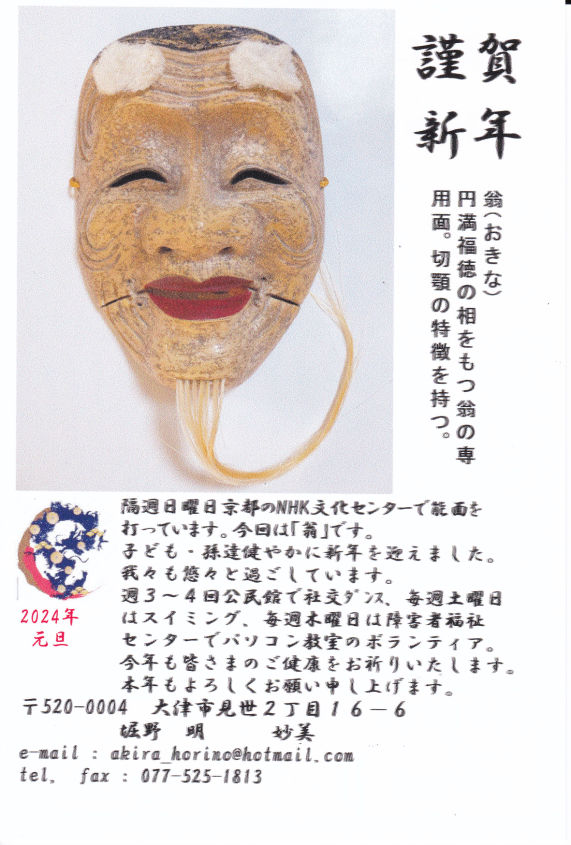 謹賀
新年
翁（おきな）
円満福徳の相をもつ翁の専
用面。切顎の特徴を持つ。
隔週日曜日京都のNHK文化センターで能面を
打っています。今回は「翁」です。
子ども・孫達健やかに新年を迎えました。
我々も悠々と過ごしています。
週３～４回公民館で社交ﾀﾞﾝｽ、毎週土曜日
はスイミング、毎週木曜日は障害者福祉
センターでパソコン教室のボランティア。
今年も皆さまのご健康をお祈りいたします。
本年もよろしくお願い申し上げます。
2024年
元旦
〒520-0004　大津市見世２丁目１６－６
堀野　明　　　妙美
e-mail : akira_horino@hotmail.com
tel.　fax : 077-525-1813